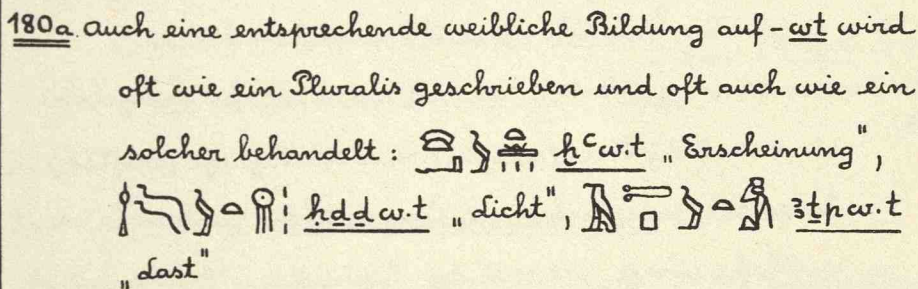 180a Auch eine entsprechende weibliche Bildung auf -wt wird
oft wie ein Pluralis geschrieben und oft auch wie ein
solcher behandelt: ḫꜥw.t „Erscheinung",
ḥḏḏw.t „Licht", ꜣṯpw.t
„Last"